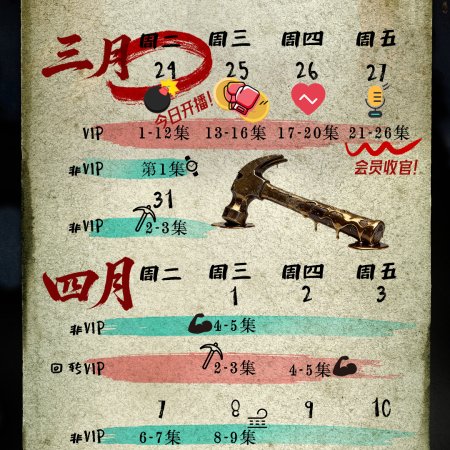 三月 周二 周三 周四 周五
24 25 26 27
今日开播!
VIP 1-12集 13-16集 17-20集 21-26集
会员收官!
非VIP 第1集
31
非VIP 2-3集
四月 周二 周三 周四 周五
1 2 3
非VIP 4-5集
回转VIP 2-3集 4-5集
7 8 9 10
非VIP 6-7集 8-9集